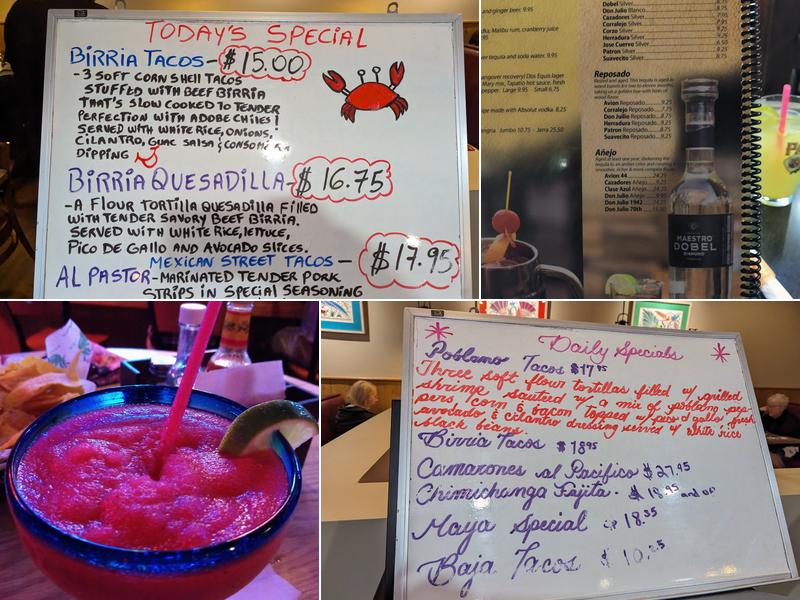 TODAY'S SPECIAL
BIRRIA TACOS - $15.00
- 3 SOFT CORN SHELL TACOS
STUFFED WITH BEEF BIRRIA
THAT'S SLOW COOKED TO TENDER
PERFECTION WITH ADOBE CHILES!
SERVED WITH WHITE RICE, ONIONS,
CILANTRO, GUAC SALSA & CONSOMÉ FOR
DIPPING
BIRRIA QUESADILLA - $16.75
- A FLOUR TORTILLA QUESADILLA FILLED
WITH TENDER SAVORY BEEF BIRRIA.
SERVED WITH WHITE RICE, LETTUCE,
PICO DE GALLO AND AVOCADO SLICES.
MEXICAN STREET TACOS - $17.95
AL PASTOR - MARINATED TENDER PORK
STRIPS IN SPECIAL SEASONING
and ginger beer. 9.95
Malibu rum, cranberry juice
tequila and soda water. 9.95
hangover recovery! Dos Equis lager
Mary mix, Tapatio hot sauce, fresh
pepper. Large 9.95 Small 6.75
made with Absolut vodka. 8.25
Jumbo 10.75 Jarra 25.50
Dobel Silver
Don Julio Blanco
Cazadores Silver
Corralejo Silver
Corzo Silver
Herradura Silver
Jose Cuervo Silver
Patron Silver
Suavecito Silver
Reposado
Rested and aged. This tequila is aged in
Avion Reposado 9.25
Corralejo Reposado
Don Julio Reposado
Herradura Reposado
Patron Reposado
Suavecito Reposado
Añejo
Avion 44
Cazadores Añejo
Clase Azul Añejo
Don Julio Añejo
Don Julio 1942
Don Julio 70th
MAESTRO
DOBEL
DIAMOND
Daily Specials
Poblano Tacos $17.95
Three soft flour tortillas filled w/ grilled
shrimp, sautéed w/ a mix of poblano pep-
pers, corn & bacon, topped w/ pico d gallo, fresh
avocado & cilantro dressing served w/ white rice
black beans.
Birria Tacos $18.95
Camarones al Pacifico $27.95
Chimichanga Fajita - $ and up
Maya Special $18.35
Baja Tacos $